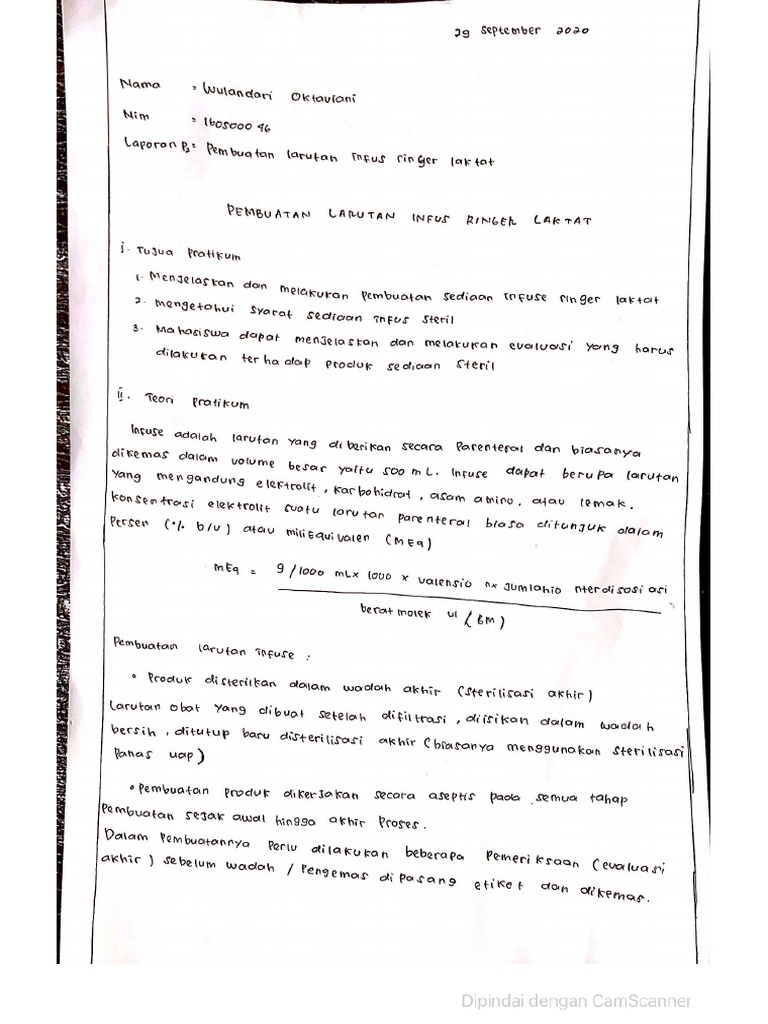 29 September 2020
Nama = Wulandari Oktaviani
Nim = 160500096
Laporan P3 = Pembuatan larutan infus ringer laktat
PEMBUATAN LARUTAN INFUS RINGER LAKTAT
i. Tujua pratikum
1. Menjelaskan dan melakukan pembuatan sediaan infuse ringer laktat
2. mengetahui syarat sediaan infus steril
3. Mahasiswa dapat menjelaskan dan melakukan evaluasi yang harus
dilakukan terhadap produk sediaan steril
ii. Teori pratikum
Infuse adalah larutan yang diberikan secara parenteral dan biasanya
dikemas dalam volume besar yaitu 500 mL. Infuse dapat berupa larutan
yang mengandung elektrolit, karbohidrat, asam amino, atau lemak.
konsentrasi elektrolit suatu larutan parenteral biasa ditunjuk dalam
Persen (% b/v) atau miliEquivalen (MEq)
mEq = g/1000 mL x 1000 x valensio nx jumlahio nterdisosi asi
berat molek ul (BM)
Pembuatan larutan infuse :
• Produk disterilkan dalam wadah akhir (sterilisasi akhir)
Larutan obat yang dibuat setelah difiltrasi, diisikan dalam wadah
bersih, ditutup baru disterilisasi akhir (biasanya menggunakan sterilisasi
Panas uap)
• Pembuatan produk dikerjakan secara aseptis pada semua tahap
Pembuatan sejak awal hingga akhir proses.
Dalam Pembuatannya Perlu dilakukan beberapa Pemeriksaan (evaluasi
akhir) sebelum wadah / Pengemas dipasang etiket dan dikemas.
Dipindai dengan CamScanner